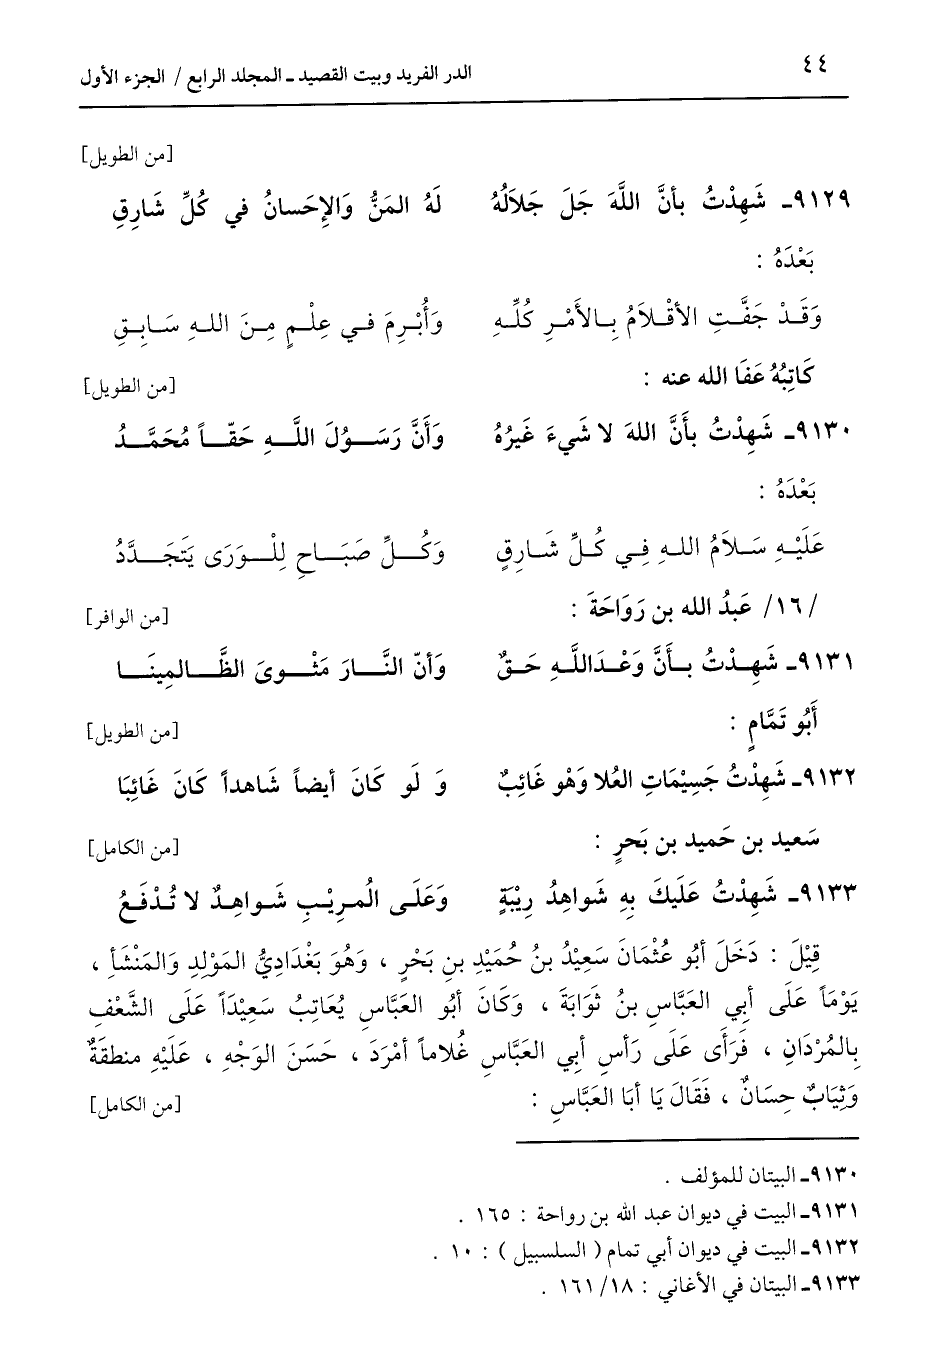 ٤٤
الدر الفريد وبيت القصيد ـ المجلد الرابع / الجزء الأول
[من الطويل]
٩١٢٩ـ شَهِدْتُ بأنَّ اللَّهَ جَلَ جَلاَلُهُ لَهُ المَنُّ وَالإِحَسانُ في كُلِّ شَارِقِ
بَعْدَهُ :
وَقَدْ جَفَّتِ الأقْلاَمُ بِالأَمْرِ كُلِّهِ وَأُبْرِمَ في عِلْمٍ مِنَ اللهِ سَابِقِ
كَاتِبُهُ عَفَا الله عنه : [من الطويل]
٩١٣٠ـ شَهِدْتُ بأَنَّ اللهَ لا شَيءَ غَيرُهُ وَأَنَّ رَسُولَ اللَّهِ حَقّاً مُحَمَّدُ
بَعْدَهُ :
عَلَيْهِ سَلاَمُ اللهِ فِي كُلِّ شَارِقٍ وَكُلِّ صَبَاحٍ لِلْوَرَى يَتَجَدَّدُ
/١٦/ عَبدُ الله بن رَوَاحَةَ : [من الوافر]
٩١٣١ـ شَهِدْتُ بأنَّ وَعْدَاللَّهِ حَقٌ وَأنّ النَّارَ مَثْوىَ الظَّالمِينَا
أَبُو تَمَّامٍ : [من الطويل]
٩١٣٢ـ شَهِدْتُ جَسِيْمَاتِ العُلا وَهْو غَائِبٌ وَ لَو كَانَ أيضاً شَاهداً كَانَ غَائِبَا
سَعيد بن حَميد بن بَحرٍ : [من الكامل]
٩١٣٣ـ شَهِدْتُ عَلَيكَ بِهِ شَواهِدُ رِيْبَةٍ وَعَلَى المُرِيْبِ شَواهِدٌ لا تُدْفَعُ
قِيْلَ : دَخَلَ أبُو عُثْمَانَ سَعِيْدُ بنُ حُمَيْدِ بنِ بَحْرٍ ، وَهُوَ بَغْدَادِيُّ المَوْلِدِ وَالمَنْشَأِ ،
يَوْمَاً عَلَى أبِي العَبَّاسِ بنُ ثَوابَةَ ، وَكَانَ أبُو العَبَّاسِ يُعَاتِبُ سَعِيْدَاً عَلَى الشَّغْفِ
بِالمُرْدَانِ ، فَرَأى عَلَى رَأسِ أبِي العَبَّاسِ غُلاماً أمْرَدَ ، حَسَنَ الوَجْهِ ، عَلَيْهِ منطقةٌ
وَثِيَابٌ حِسَانٌ ، فَقَالَ يَا أبَا العَبَّاسِ : [من الكامل]
٩١٣٠ـ البيتان للمؤلف .
٩١٣١ـ البيت في ديوان عبد الله بن رواحة : ١٦٥ .
٩١٣٢ـ البيت في ديوان أبي تمام ( السلسبيل ) : ١٠ .
٩١٣٣ـ البيتان في الأغاني : ١٦١/١٨ .